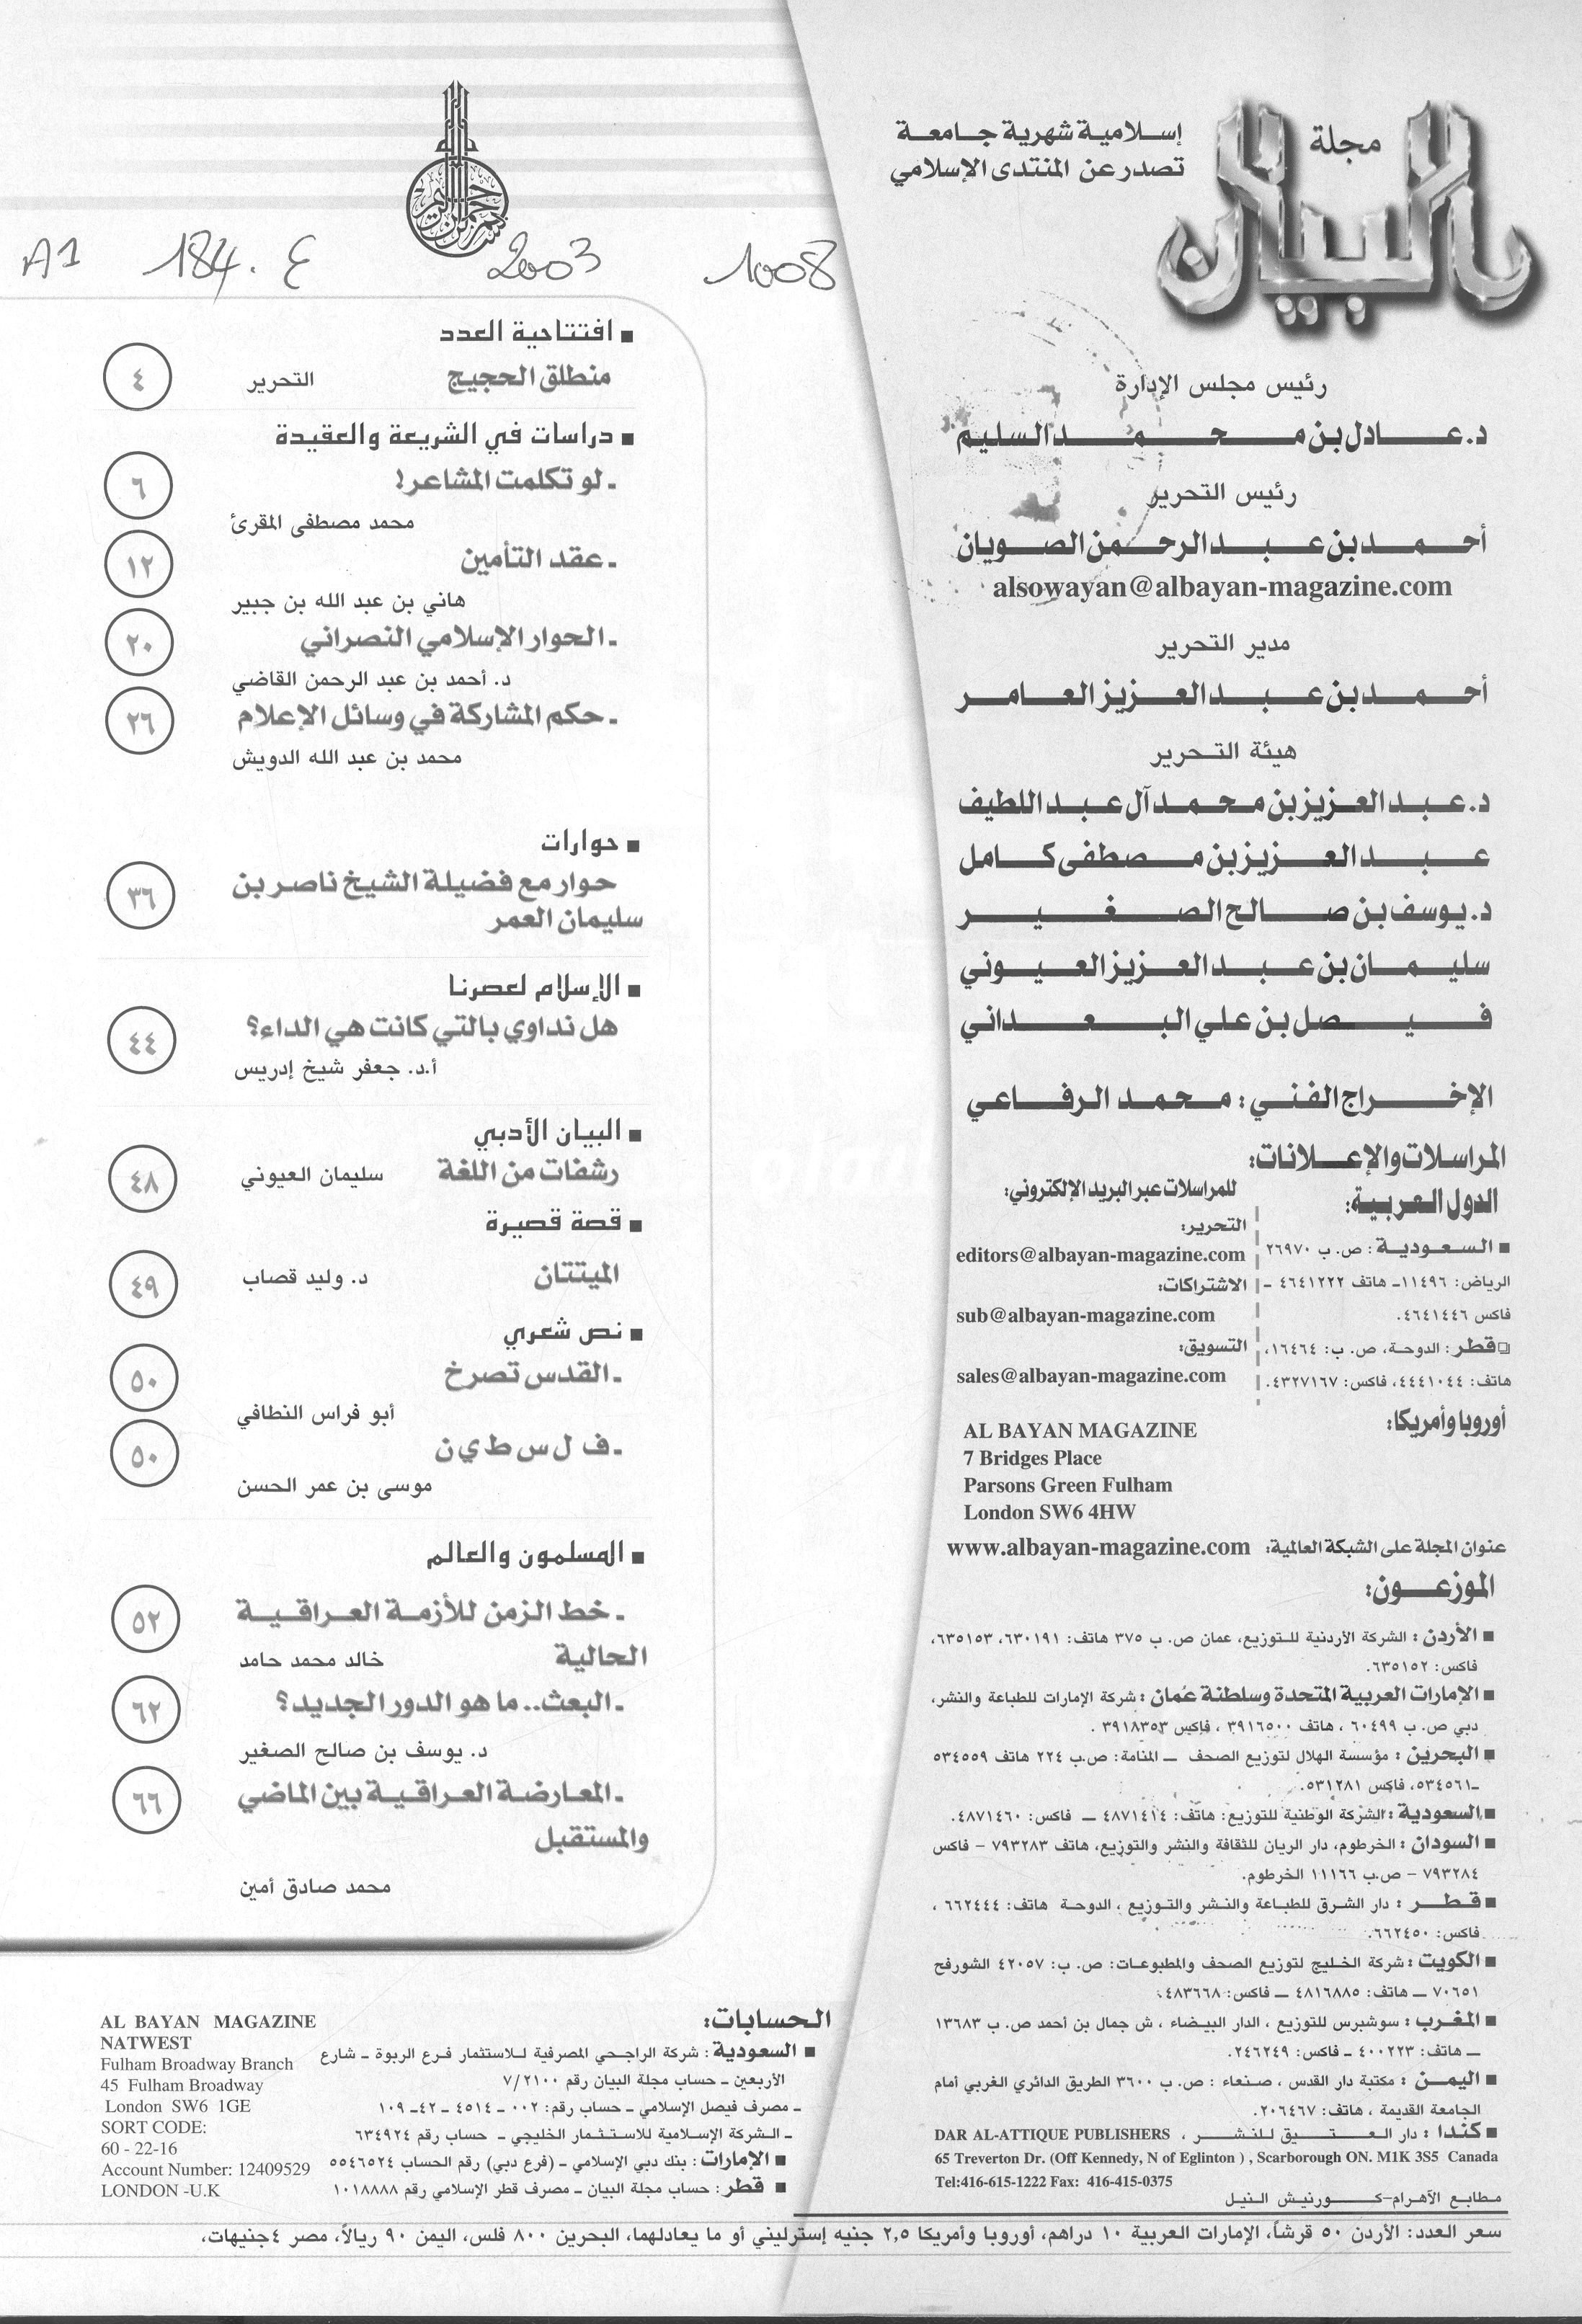 مجلة
البيان
إسلامية شهرية جامعة
تصدر عن المنتدى الإسلامي
رئيس مجلس الإدارة
د. عادل بن محمد السليم
رئيس التحرير
أحمد بن عبد الرحمن الصويان
alsowayan@albayan-magazine.com
مدير التحرير
أحمد بن عبد العزيز العامر
هيئة التحرير
د. عبد العزيز بن محمد آل عبد اللطيف
عبد العزيز بن مصطفى كامل
د. يوسف بن صالح الصغير
سليمان بن عبد العزيز العيوني
فيصل بن علي البعداني
الإخراج الفني: محمد الرفاعي
المراسلات والإعلانات:
الدول العربية:
■ السعودية: ص. ب ٢٦٩٧٠
الرياض: ١١٤٩٦ـ هاتف ٤٦٤١٢٢٢ -
فاكس ٤٦٤١٤٤٦.
قطر: الدوحة، ص. ب: ١٦٤٦٤،
هاتف: ٤٤٤١٠٤٤، فاكس: ٤٣٢٧١٦٧.
للمراسلات عبر البريد الإلكتروني:
التحرير:
editors@albayan-magazine.com
الاشتراكات:
sub@albayan-magazine.com
التسويق:
sales@albayan-magazine.com
أوروبا وأمريكا:
AL BAYAN MAGAZINE
7 Bridges Place
Parsons Green Fulham
London SW6 4HW
عنوان المجلة على الشبكة العالمية: www.albayan-magazine.com
الموزعون:
■ الأردن: الشركة الأردنية للتوزيع، عمان ص. ب ٣٧٥ هاتف: ٦٣٠١٩١، ٦٣٥١٥٣،
فاكس: ٦٣٥١٥٢.
■ الإمارات العربية المتحدة وسلطنة عُمان: شركة الإمارات للطباعة والنشر،
دبي ص. ب ٦٠٤٩٩، هاتف ٣٩١٦٥٠٠، فاكس ٣٩١٨٣٥٣.
■ البحرين: مؤسسة الهلال لتوزيع الصحف ــ المنامة: ص.ب ٢٢٤ هاتف ٥٣٤٥٥٩
ـ٥٣٤٥٦١، فاكس ٥٣١٢٨١.
■ السعودية: الشركة الوطنية للتوزيع: هاتف: ٤٨٧١٤١٤ ــ فاكس: ٤٨٧١٤٦٠.
■ السودان: الخرطوم، دار الريان للثقافة والنشر والتوزيع، هاتف ٧٩٣٢٨٣ - فاكس
٧٩٣٢٨٤ - ص.ب ١١١٦٦ الخرطوم.
■ قطر: دار الشرق للطباعة والنشر والتوزيع، الدوحة هاتف: ٦٦٢٤٤٤،
فاكس: ٦٦٢٤٥٠.
■ الكويت: شركة الخليج لتوزيع الصحف والمطبوعات: ص. ب: ٤٢٠٥٧ الشورفح
٧٠٦٥١ ــ هاتف: ٤٨١٦٨٨٥ ــ فاكس: ٤٨٣٦٦٨.
■ المغرب: سوشبرس للتوزيع، الدار البيضاء، ش جمال بن أحمد ص. ب ١٣٦٨٣
ــ هاتف: ٤٠٠٢٢٣ ـ فاكس: ٢٤٦٢٤٩.
■ اليمن: مكتبة دار القدس، صنعاء: ص. ب ٣٦٠٠ الطريق الدائري الغربي أمام
الجامعة القديمة، هاتف: ٢٠٦٤٦٧.
■ كندا: دار العتيق للنشر، DAR AL-ATTIQUE PUBLISHERS
65 Treverton Dr. (Off Kennedy, N of Eglinton ) , Scarborough ON. M1K 3S5 Canada
Tel:416-615-1222 Fax: 416-415-0375
مطابع الأهرام-كورنيش النيل
A1 184. E 2003 1008
■ افتتاحية العدد
منطلق الحجيج التحرير ٤
■ دراسات في الشريعة والعقيدة
ـ لو تكلمت المشاعر! ٦
محمد مصطفى المقرئ
ـ عقد التأمين ١٢
هاني بن عبد الله بن جبير
ـ الحوار الإسلامي النصراني ٢٠
د. أحمد بن عبد الرحمن القاضي
ـ حكم المشاركة في وسائل الإعلام ٢٦
محمد بن عبد الله الدويش
■ حوارات
حوار مع فضيلة الشيخ ناصر بن ٣٦
سليمان العمر
■ الإسلام لعصرنا
هل نداوي بالتي كانت هي الداء؟ ٤٤
أ.د. جعفر شيخ إدريس
■ البيان الأدبي
رشفات من اللغة سليمان العيوني ٤٨
■ قصة قصيرة
الميتتان د. وليد قصاب ٤٩
■ نص شعري
ـ القدس تصرخ ٥٠
أبو فراس النطافي
ـ ف ل س ط ي ن ٥٠
موسى بن عمر الحسن
■ المسلمون والعالم
ـ خط الزمن للأزمة العراقية ٥٢
الحالية خالد محمد حامد
ـ البعث.. ما هو الدور الجديد؟ ٦٢
د. يوسف بن صالح الصغير
ـ المعارضة العراقية بين الماضي ٦٦
والمستقبل
محمد صادق أمين
الحسابات:
■ السعودية: شركة الراجحي المصرفية للاستثمار فرع الربوة ـ شارع
الأربعين ـ حساب مجلة البيان رقم ٧/٢١٠٠
ـ مصرف فيصل الإسلامي ـ حساب رقم: ٠٠٢ ـ ٤٥١٤ ـ ٤٢ـ ١٠٩
ـ الشركة الإسلامية للاستثمار الخليجي ـ حساب رقم ٦٣٤٩٢٤
■ الإمارات: بنك دبي الإسلامي ـ (فرع دبي) رقم الحساب ٥٥٤٦٥٢٤
■ قطر: حساب مجلة البيان ـ مصرف قطر الإسلامي رقم ١٠١٨٨٨٨
AL BAYAN MAGAZINE
NATWEST
Fulham Broadway Branch
45 Fulham Broadway
London SW6 1GE
SORT CODE:
60 - 22-16
Account Number: 12409529
LONDON -U.K
سعر العدد: الأردن ٥٠ قرشاً، الإمارات العربية ١٠ دراهم، أوروبا وأمريكا ٢,٥ جنيه إسترليني أو ما يعادلهما، البحرين ٨٠٠ فلس، اليمن ٩٠ ريالاً، مصر ٤جنيهات،